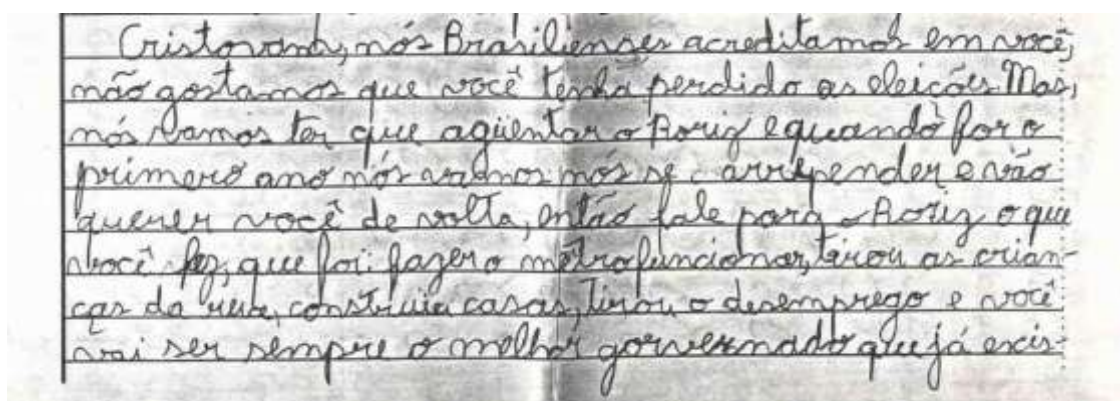 Cristovam, nós Brasilienses acreditamos em você,
não gostamos que você tenha perdido as eleições. Mas,
nós vamos ter que agüentar o Roriz e quando for o
primero ano nós vamos nós se arrepender e vão
querer você de volta, então fale para o Roriz o que
você fez, que foi: fazer o mêtro funcionar, tirou as crian-
ças da rua, construiu casas, tirou o desemprego e você
vai ser sempre o melhor gorvernado que já exis-